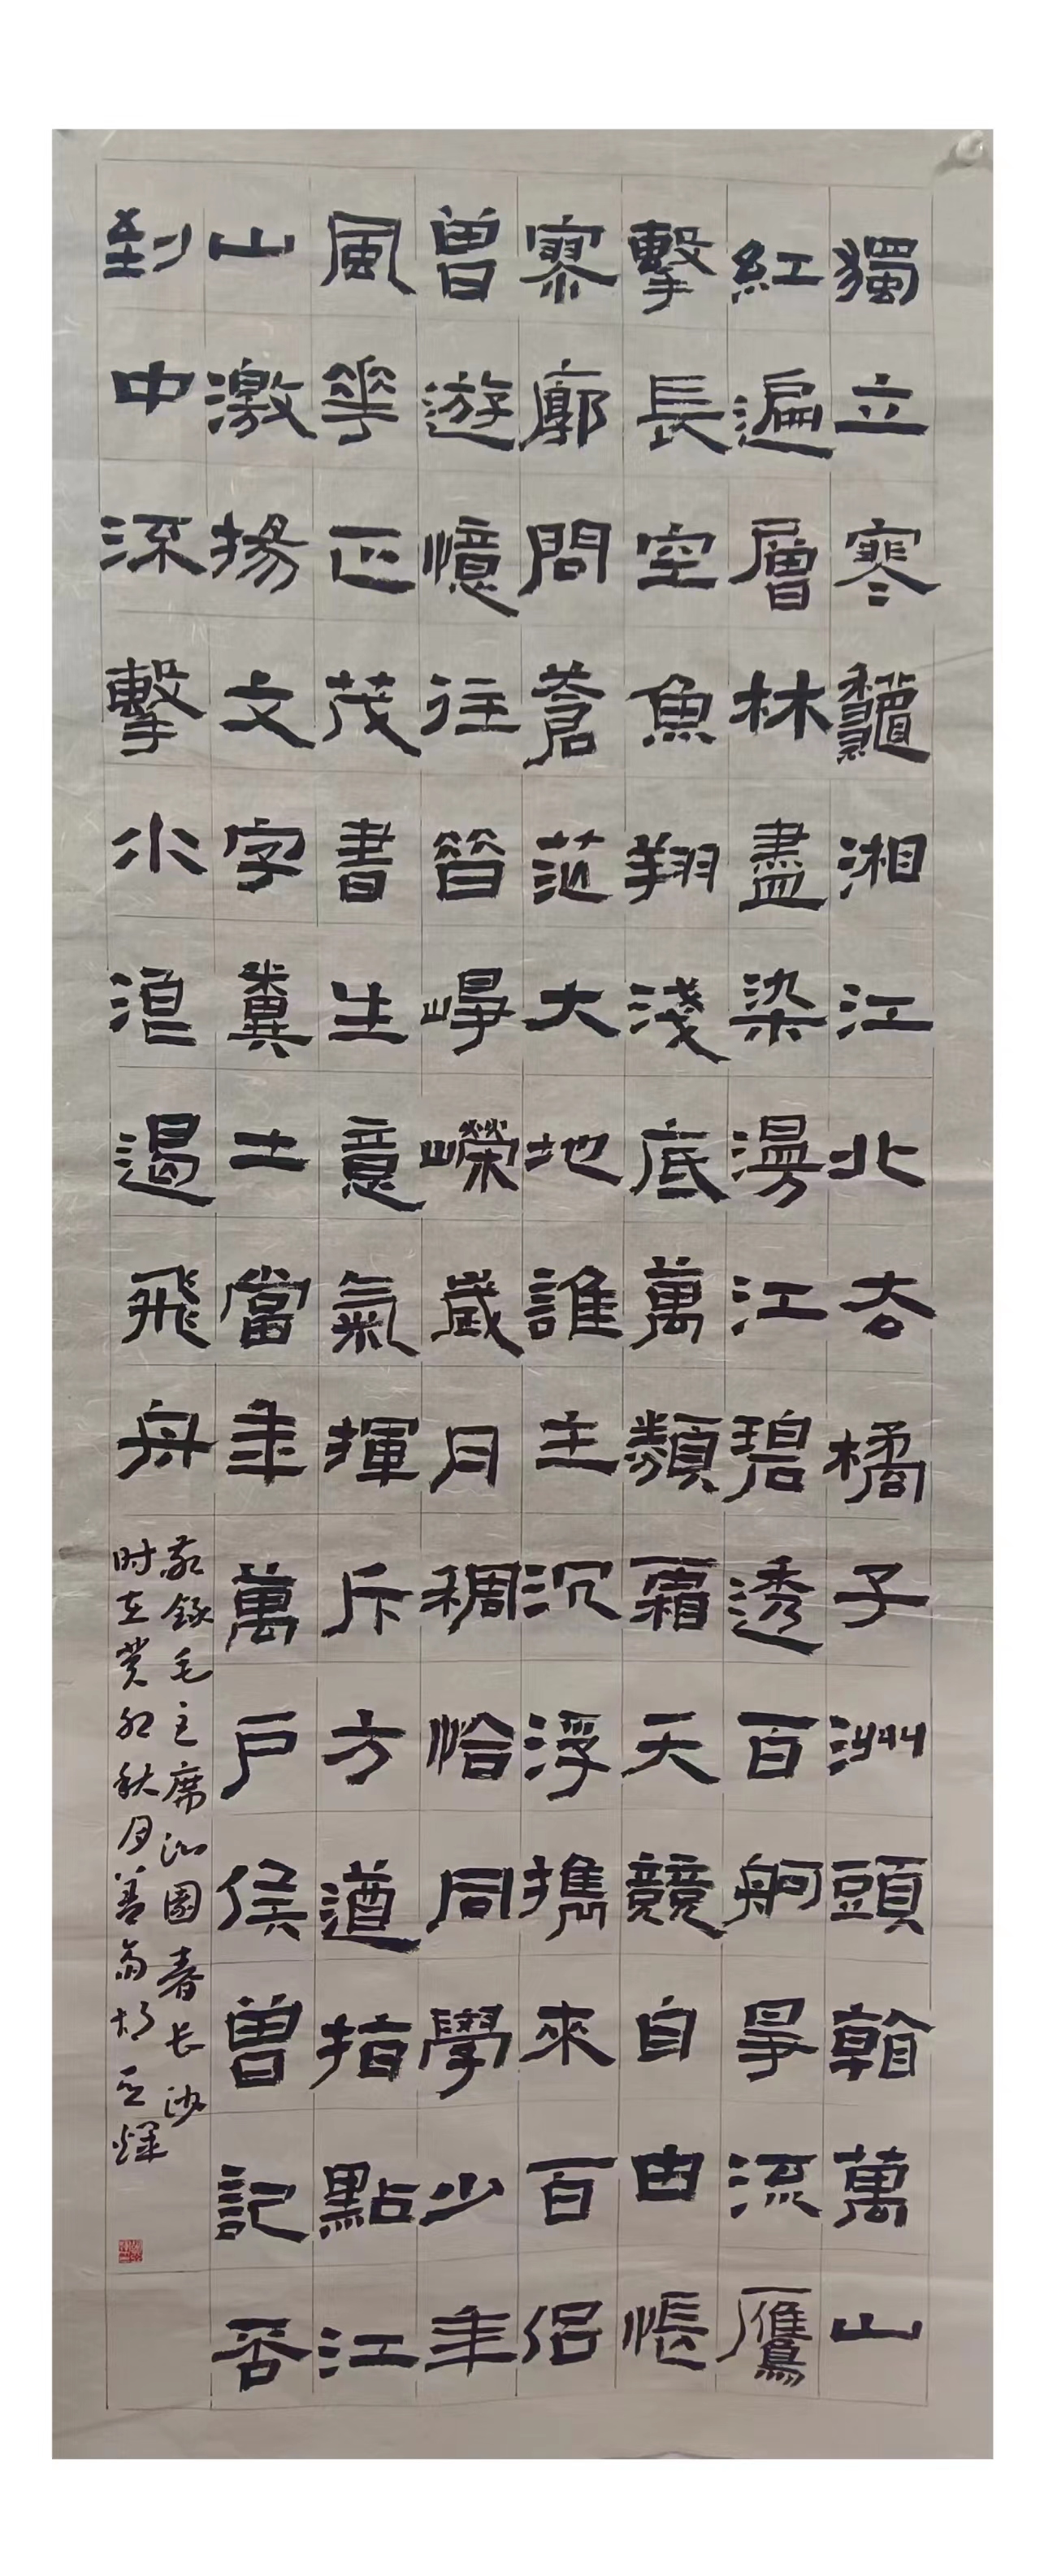 獨立寒龝湘江北去橘子洲頭看萬山
紅遍層林盡染漫江碧透百舸爭流鷹
擊長空魚翔淺底萬類霜天競自由悵
寥廓問蒼茫大地誰主沉浮攜來百侶
曾遊憶往昔崢嶸歲月稠恰同學少年
風華正茂書生意氣揮斥方遒指點江
山激揚文字糞土當年萬戶侯曾記否
到中流擊水浪遏飛舟
敬錄毛主席沁園春长沙
时在癸卯秋月善翁胡